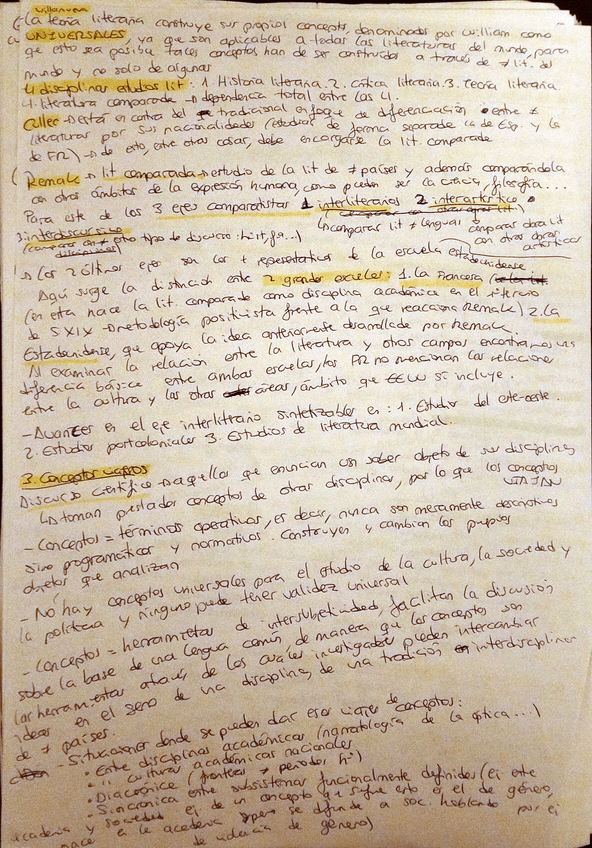 Villanueva
La teoría literaria construye sus propios conceptos, denominados por william como
UNIVERSALES, ya que son aplicables a todas las literaturas del mundo, para
que esto sea posible tales conceptos han de ser construidos a través de ≠ lit. del
mundo y no solo de algunas
4 disciplinas estudios lit: 1. Historia literaria. 2. crítica literaria. 3. Teoría literaria.
4. literatura comparada → dependencia total entre las 4.
Culler → está en contra del tradicional enfoque de diferenciación entre ≠
literaturas por sus nacionalidades (estudiar de forma separada la de Esp. y la
de FR) → de esto, entre otras cosas, debe encargarse la lit. comparada
Remak → lit comparada → estudio de la lit de ≠ países y además comparándola
con otros ámbitos de la expresión humana, como pueden ser la ciencia, filosofía...
Para este de los 3 ejes comparatistas 1 interliterarios 2 interartístico
3. interdiscursivo
(comparar con ≠ otro tipo de discurso: hist, fª...) comparar lit ≠ lenguas comparar obra lit
disciplinas con otras obras
artísticas
→ Los 2 últimos ejes son los + representativos de la escuela estadounidense
Aquí surge la distinción entre 2 grandes escuelas: 1. La Francesa
(en esta nace la lit. comparada como disciplina académica en el tercio
de S XIX → metodología positivista frente a la que reacciona Remak) 2. La
Estadounidense, que apoya la idea anteriormente desarrollada por Remak.
Al examinar la relación entre la literatura y otros campos encontramos una
diferencia básica entre ambas escuelas, los FR no mencionan las relaciones
entre la cultura y las otras áreas, ámbito que EEUU sí incluye.
- Avances en el eje interliterario sintetizables en: 1. Estudios del este-oeste.
2. Estudios postcoloniales 3. Estudios de literatura mundial.
3. Conceptos viajeros
Discurso científico → aquellos que enuncian un saber objeto de sus disciplinas
toman prestados conceptos de otras disciplinas, por lo que los conceptos
VIAJAN
- Conceptos = términos operativos, es decir, nunca son meramente descriptivos
sino programáticos y normativos. Construyen y cambian los propios
objetos que analizan
- No hay conceptos universales para el estudio de la cultura, la sociedad y
la política y ninguno puede tener validez universal
- Conceptos = herramientas de intersubjetividad, facilitan la discusión
sobre la base de una lengua común de manera que los conceptos son
las herramientas a través de las cuales investigadores pueden intercambiar
ideas en el seno de una disciplina, de una tradición interdisciplinar
de ≠ países.
- Situaciones donde se pueden dar esos viajes de conceptos:
• Entre disciplinas académicas (narratología de la óptica...)
• " culturas académicas nacionales
• Diacrónica (fronteras ≠ periodos hª)
• Sincrónica entre subsistemas funcionalmente definidos (ej entre
academia y sociedad ej de un concepto que sigue esto es el de género,
nace en la academia pero se difunde a soc. hablando por ej
de violencia de género)